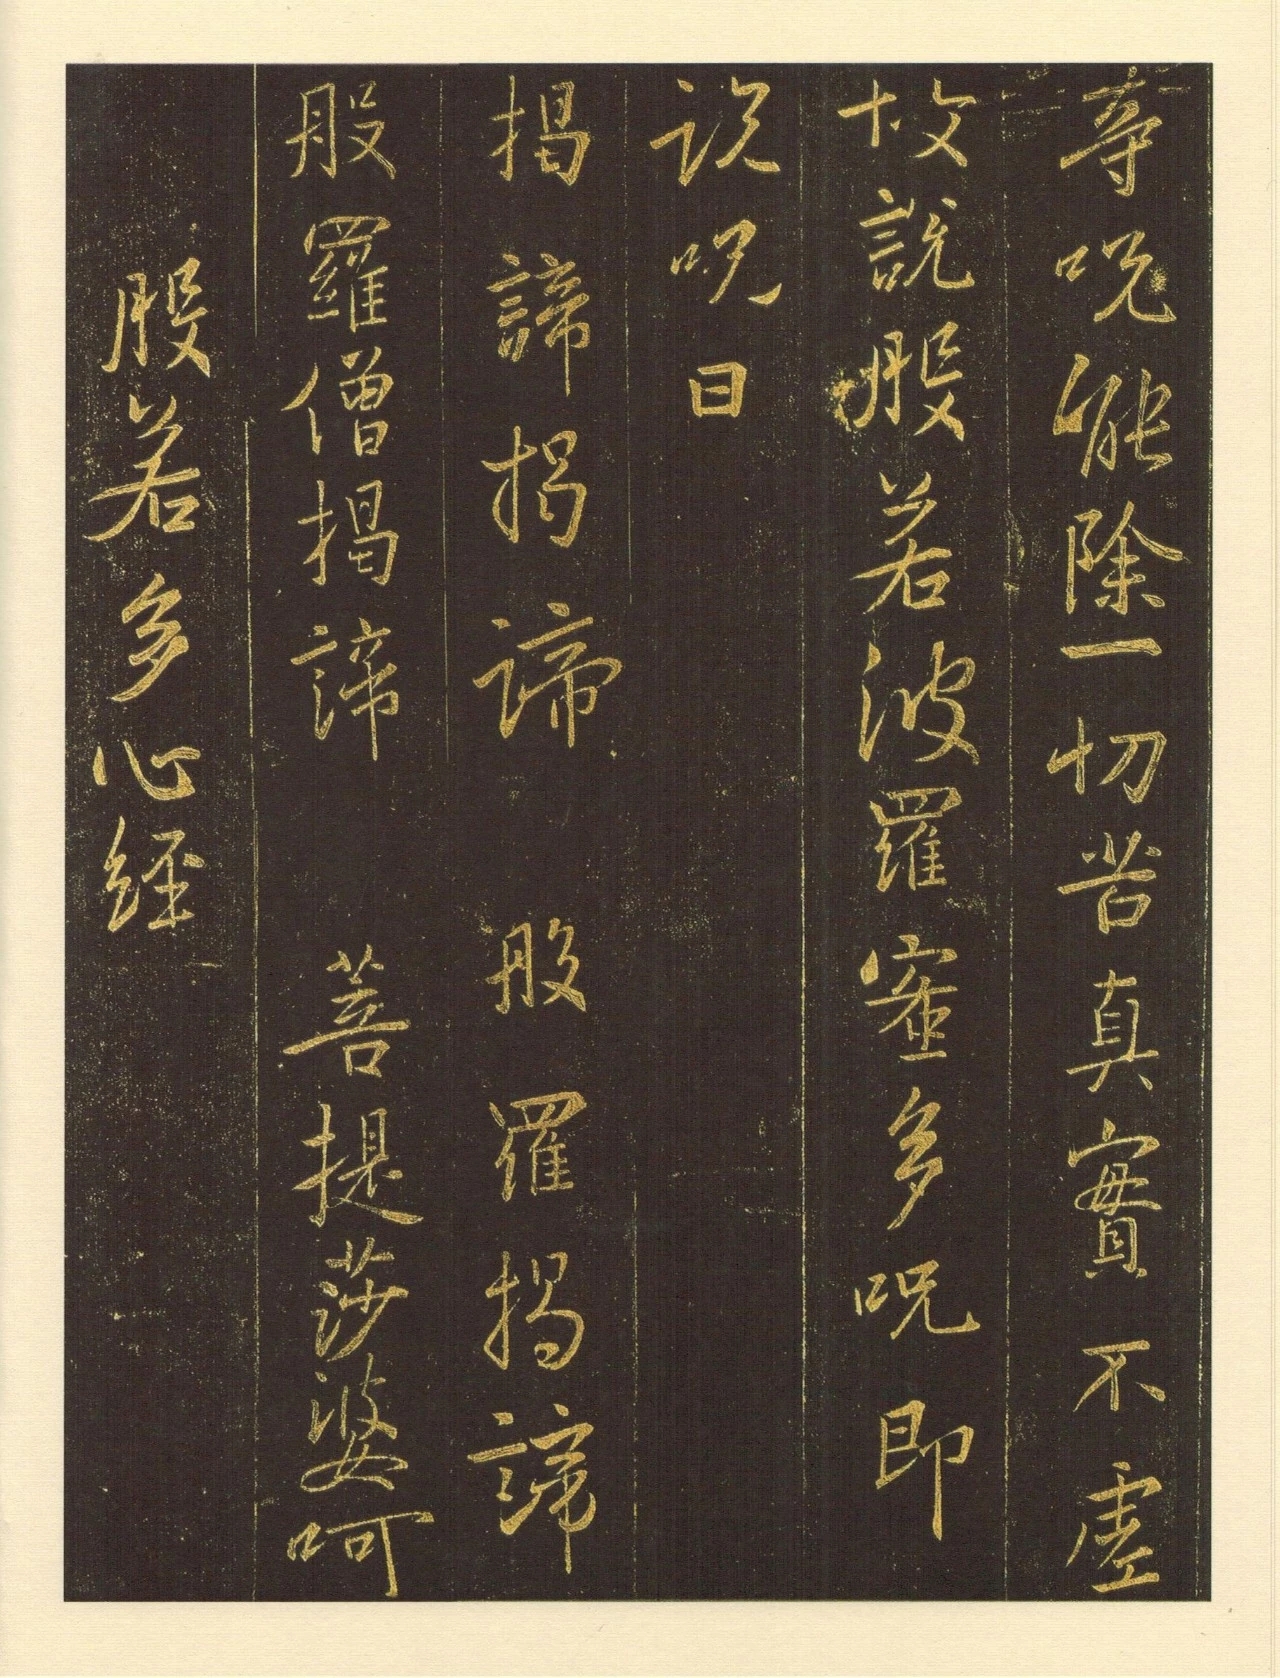 等呪能除一切苦真實不虛
故說般若波羅蜜多呪即
說呪曰
揭諦揭諦 般羅揭諦
般羅僧揭諦 菩提莎婆呵
般若多心經